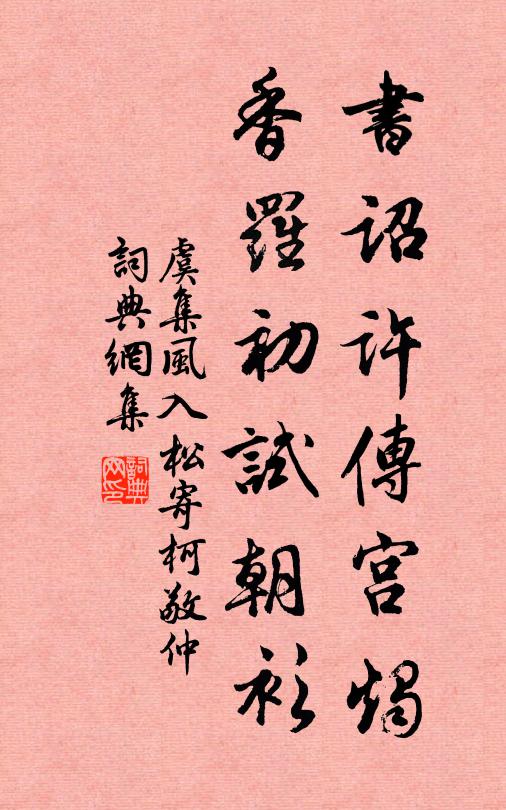 書詔許傳宮燭
香羅初試朝衫
虞集風入松寄柯敬仲
詞典網集
詞典网印